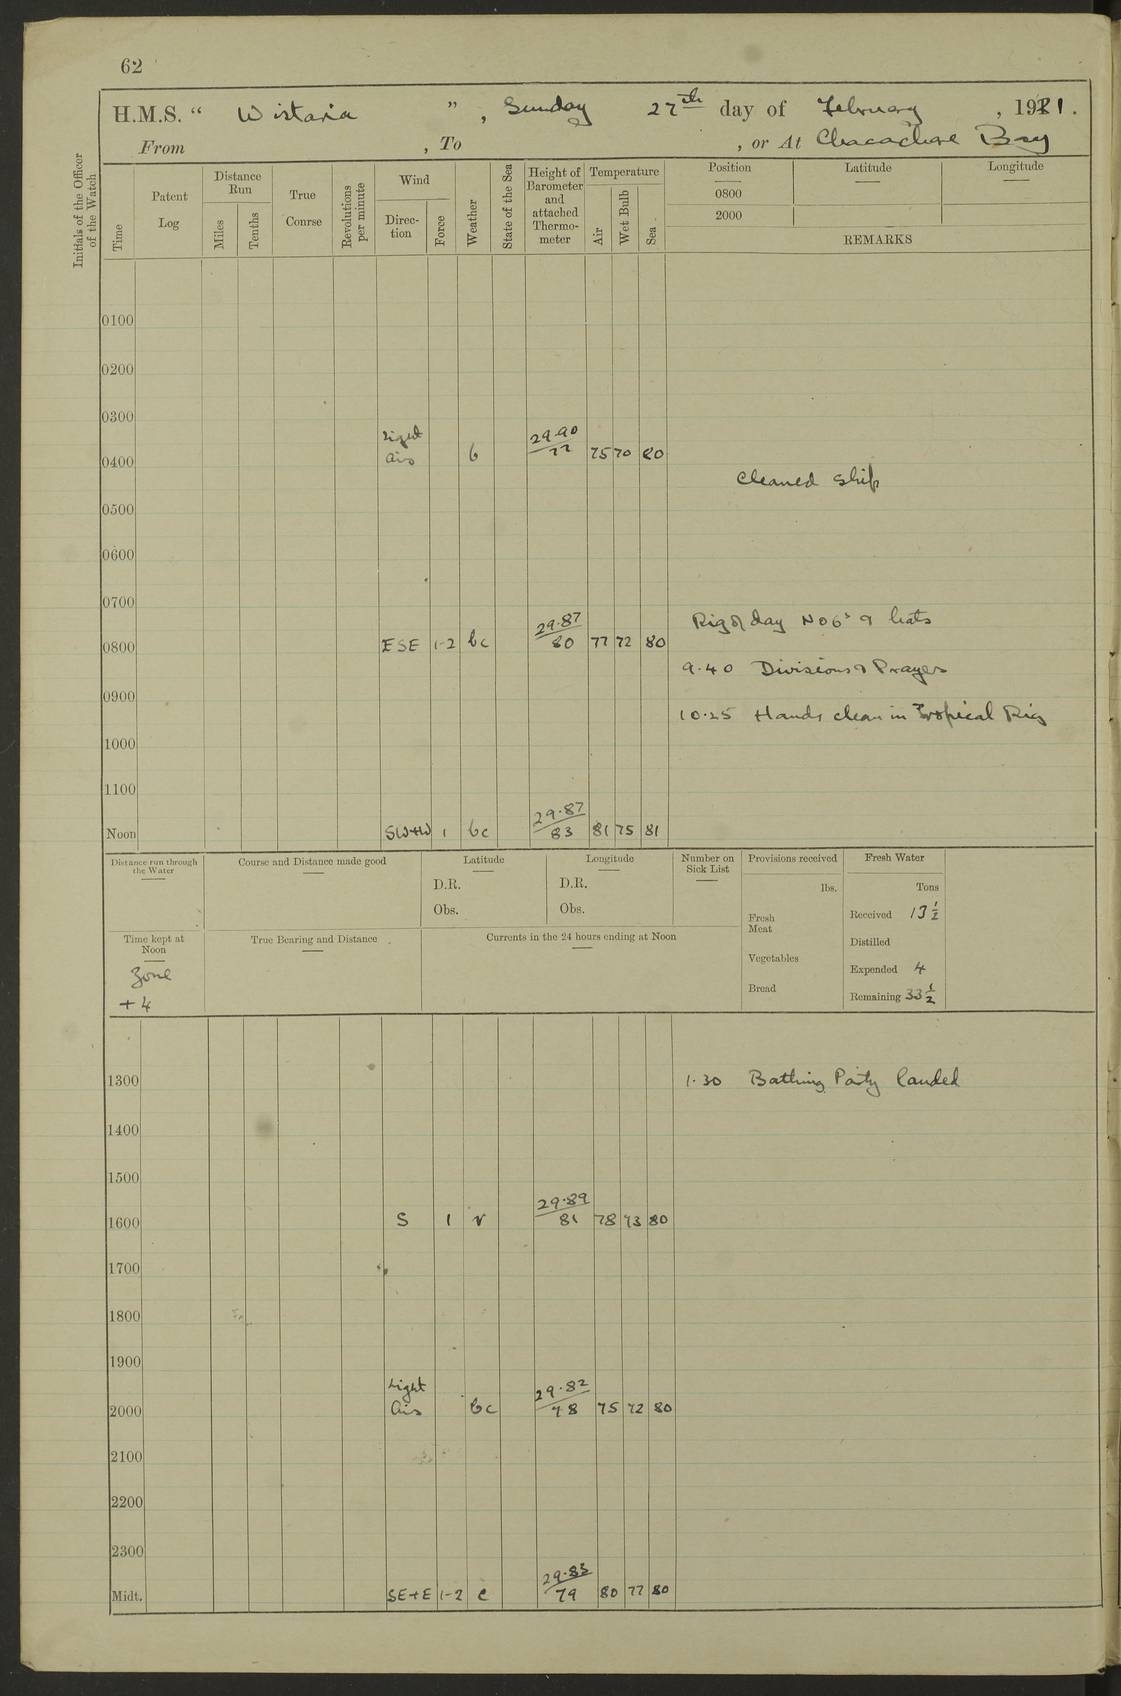 62
H.M.S. “ Wistaria ” , Sunday 27th day of February , 1921.
From , To , or At Chacachare Bay
Initials of the Officer of the Watch
Time
Patent Log
Distance Run
Miles
Tenths
True Course
Revolutions per minute
Wind
Direction
Force
Weather
State of the Sea
Height of Barometer and attached Thermometer
Temperature
Air
Wet Bulb
Sea
Position Latitude Longitude
0800
2000
REMARKS
0100
0200
0300
0400 Light airs b 29.90 77 75 70 80
Cleaned Ship
0500
0600
0700
Rig of day No 6s & hats
0800 ESE 1-2 bc 29.87 80 77 72 80
9.40 Divisions & Prayers
0900
10.25 Hands clean in Tropical Rig
1000
1100
Noon SW+W 1 bc 29.87 83 81 75 81
Distance run through the Water
Course and Distance made good
Latitude
D.R.
Obs.
Longitude
D.R.
Obs.
Number on Sick List
Provisions received
lbs.
Fresh Meat
Vegetables
Bread
Fresh Water
Tons
Received 13 1/2
Distilled
Expended 4
Remaining 33 1/2
Time kept at Noon
Zone
+ 4
True Bearing and Distance
Currents in the 24 hours ending at Noon
1300 1.30 Bathing Party landed
1400
1500
1600 S 1 r 29.89 81 78 73 80
1700
1800
1900
2000 Light airs bc 29.82 78 75 72 80
2100
2200
2300
Midt. SE+E 1-2 c 29.83 79 80 77 80